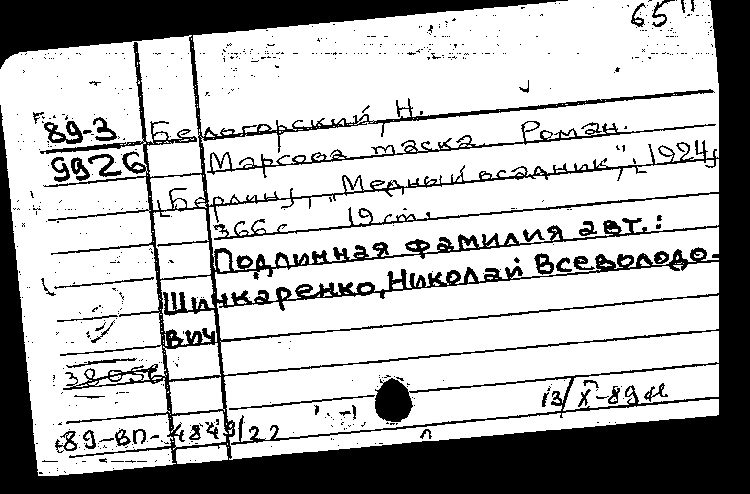 65"
89-3 Белогорский, Н.
9926 Марсова маска. Роман.
[Берлин], "Медный всадник", [1924]
366 с. 19 см.
Подлинная фамилия авт.:
Шинкаренко, Николай Всеволодо-
вич
38056
13/X-89
89-ВП-4849/22